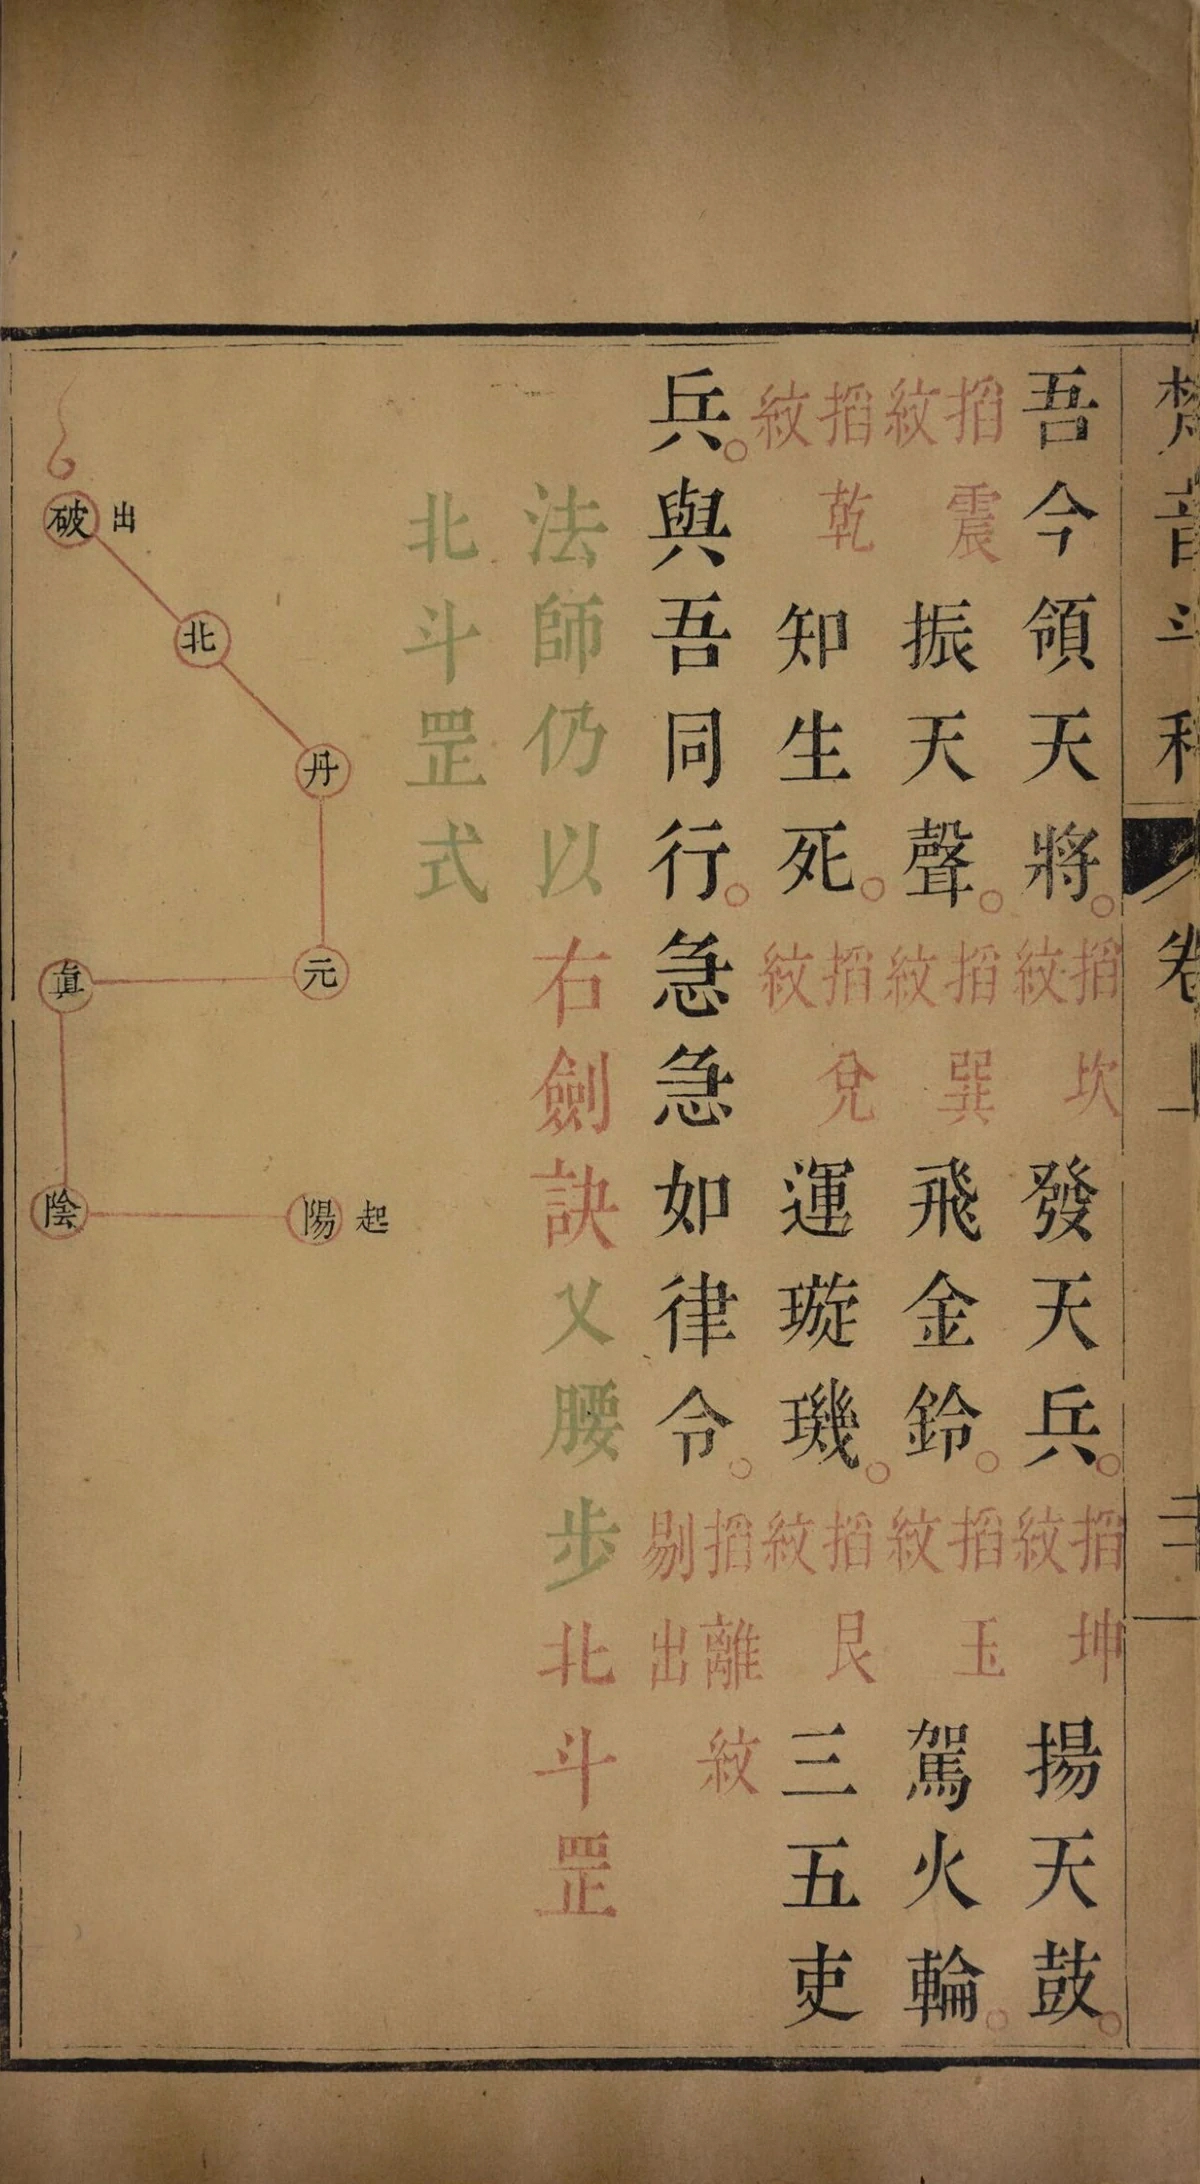 梵音斗科 卷上 二十
吾今領天將。掐坎紋發天兵。掐坤紋揚天鼓。
掐震紋振天聲。掐巽紋飛金鈴。掐玉紋駕火輪。
掐乾紋知生死。掐兌紋運璇璣。掐艮紋三五吏
兵。與吾同行。急急如律令。掐離紋剔出
法師仍以右劍訣叉腰步北斗罡
北斗罡式
起
陽
陰
眞
元
丹
北
破
出